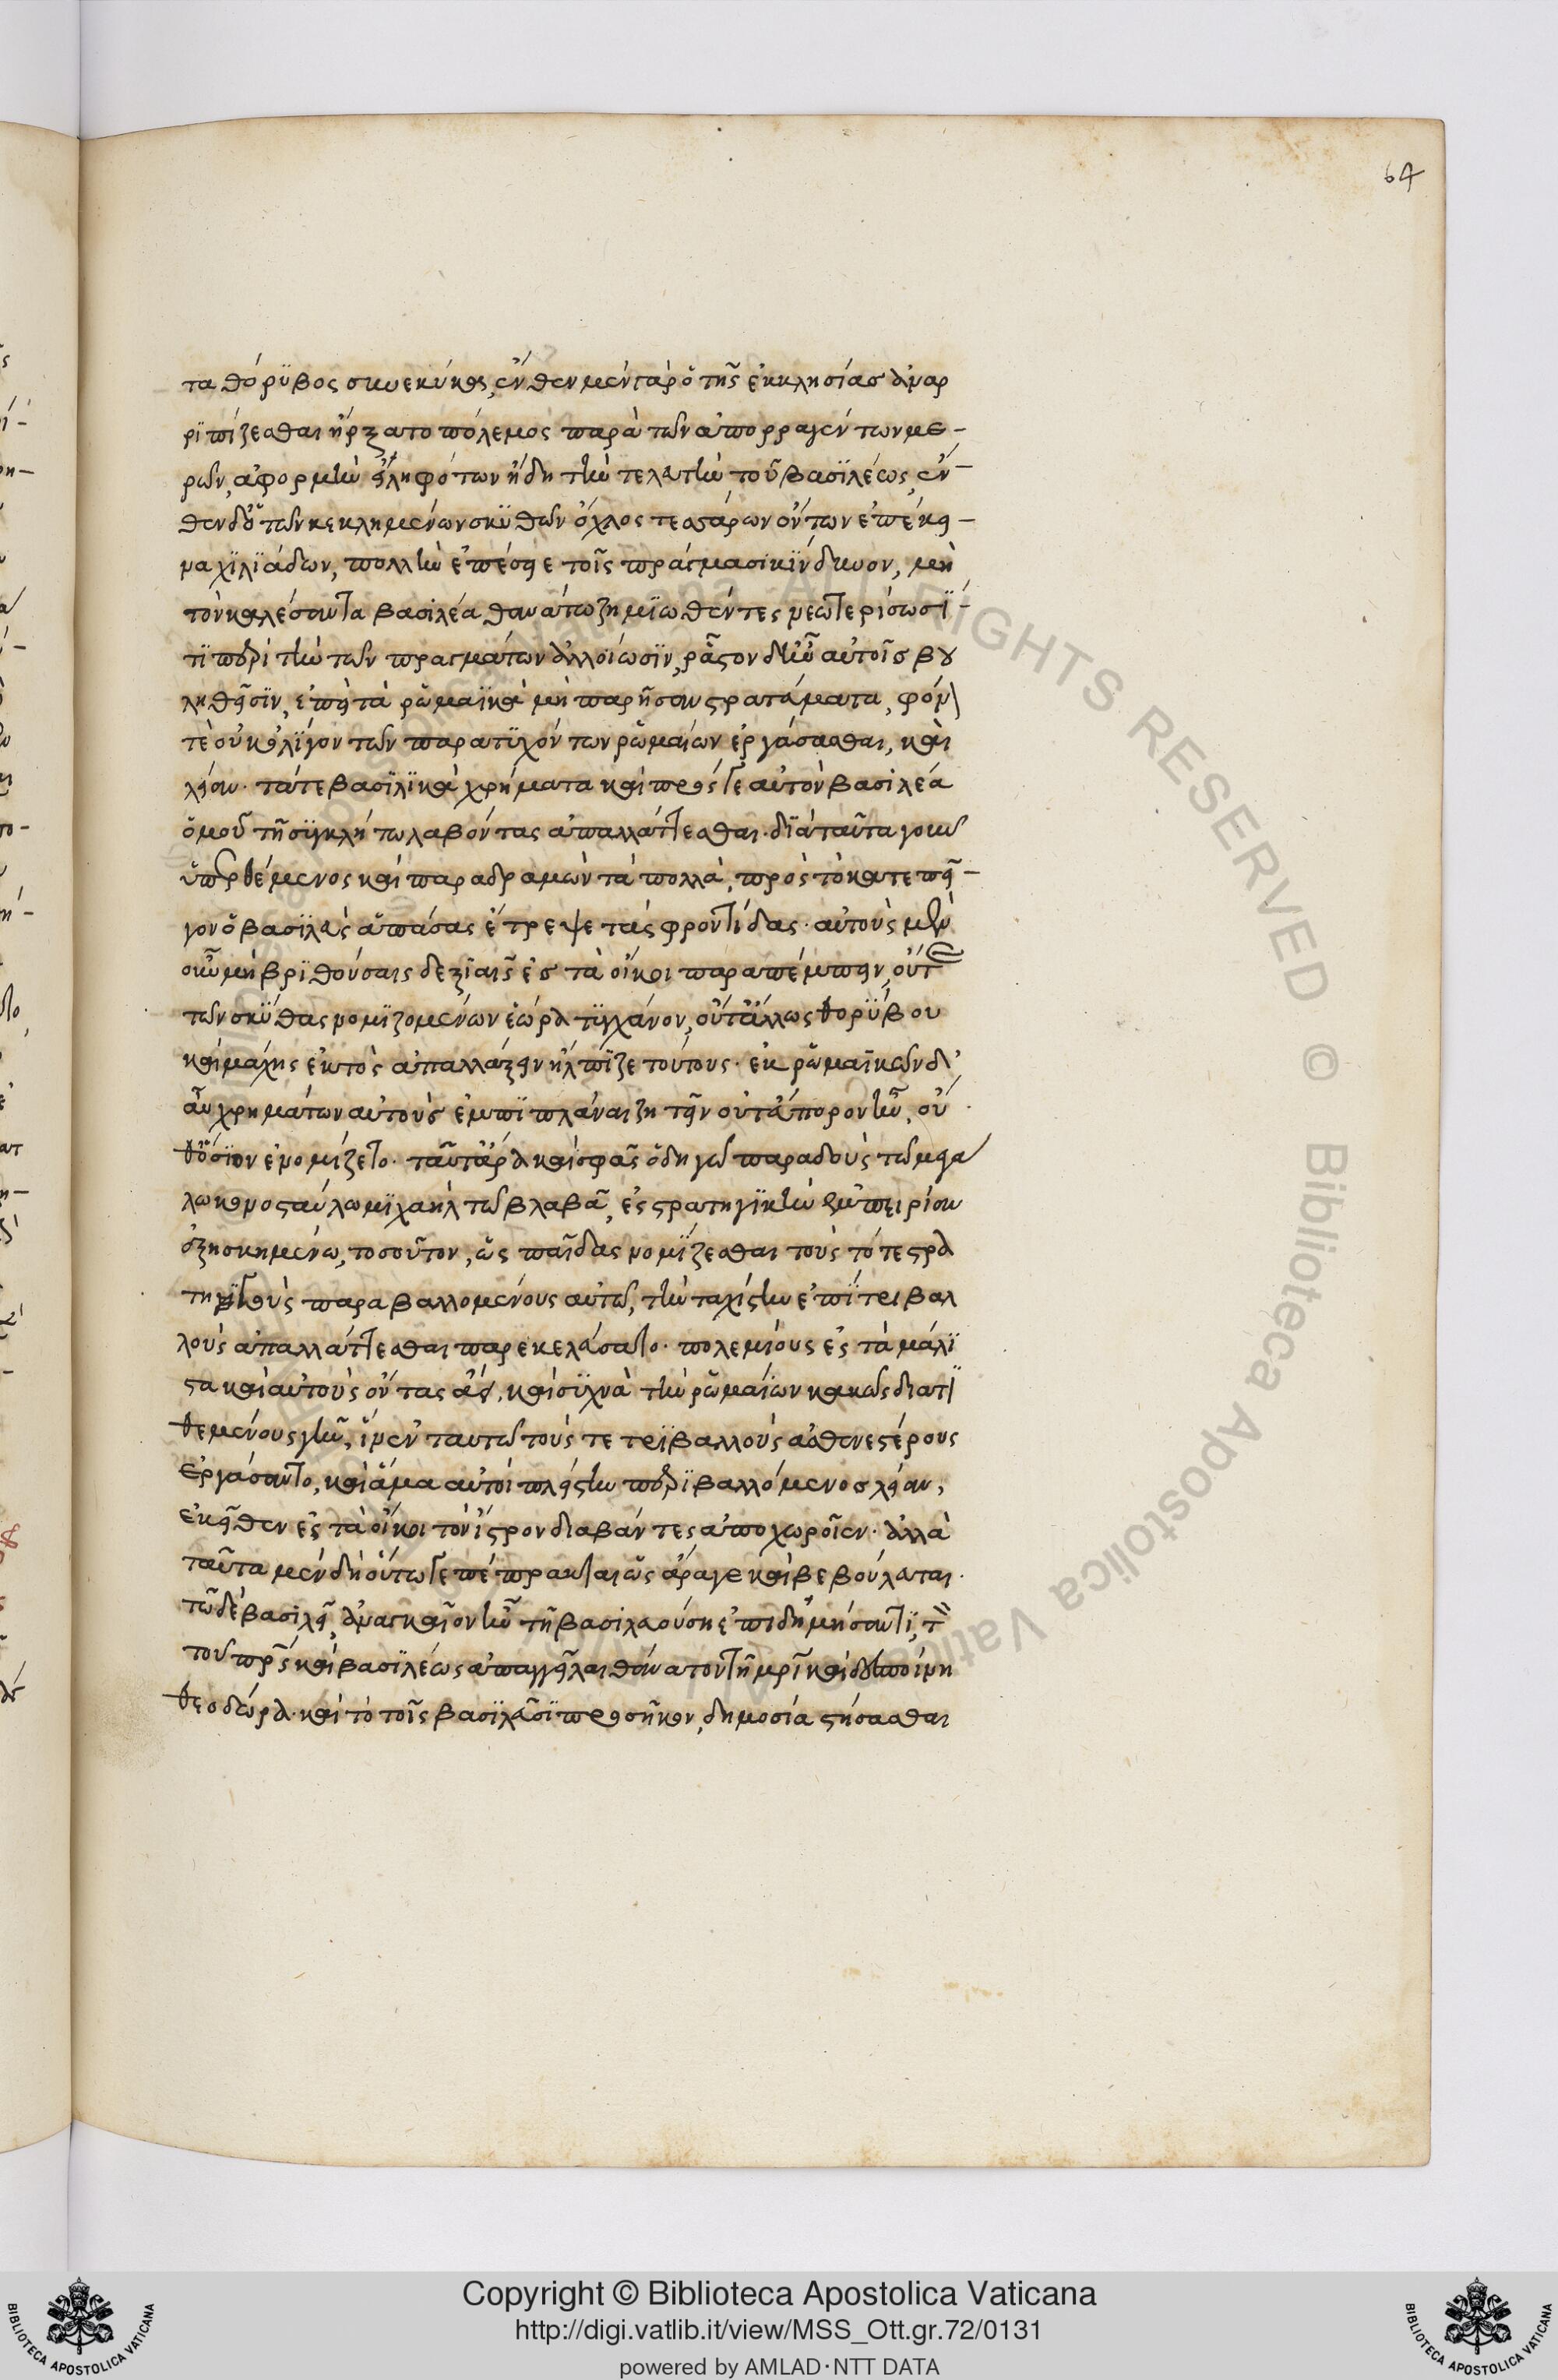 64
τα θόρυβος συνεκύκα, ἔνθεν μὲν γὰρ ὁ τῆς ἐκκλησίας ἀναρ
ριπίζεσθαι ἤρξατο πόλεμος παρὰ τῶν ἀπορραγέντων με-
ρῶν, ἀφορμὴν εἰληφότων ἤδη τὴν τελευτὴν τοῦ βασιλέως, ἔν-
θεν δ' ὁ τῶν κεκλημένων σκυθῶν ὄχλος τεσσάρων ὄντων ἐπέκει-
να χιλιάδων, πολλὴν ἐπέσειε τοῖς πράγμασι κίνδυνον, μὴ
τὸν καλέσαντα βασιλέα θανάτω ζημιωθέντες νεωτερίσωσί
τι περὶ τὴν τῶν πραγμάτων ἀλλοίωσιν, ῥᾶστον δ' ἦν αὐτοῖς βου
ληθεῖσιν, ἐπεὶ τὰ ῥωμαϊκὰ μὴ παρῆσαν στρατεύματα, φόνον
τὲ οὐκ ὀλίγον τῶν παρατυχόντων ῥωμαίων ἐργάσασθαι, καὶ
λείαν. τά τε βασιλικὰ χρήματα καὶ πρός γε αὐτὸν βασιλέα
ὁμοῦ τῆ συγκλήτω λαβόντας ἀπαλλάττεσθαι. διὰ ταῦτα γοῦν
ὑπερθέμενος καὶ παραδραμὼν τὰ πολλὰ, πρὸς τὸ κατεπεῖ-
γον ὁ βασιλεὺς ἁπάσας ἔτρεψε τὰς φροντίδας. αὐτοὺς μὲν
οὖν μὴ βριθούσαις δεξιαῖς ἐς τὰ οἴκοι παραπέμπειν, οὔτε
τῶν σκύθας νομιζομένων ἑώρα τυγχάνον, οὔτ' ἄλλως θορύβου
καὶ μάχης ἐκτὸς ἀπαλλάξειν ἤλπιζε τούτους. ἐκ ῥωμαϊκῶν δ'
αὖ χρημάτων αὐτοὺς ἐμπιπλάναι ζητεῖν οὔτ' ἄπορον ἦν, οὔ
θ' ὅσιον ἐνομίζετο. ταῦτ' ἄρα καὶ σφᾶς ὁδηγῶ παραδοὺς τῶ μεγα
λω κονοσταύλω μιχαὴλ τῶ γλαβᾶ, ἐς στρατηγικὴν ἐμπειρίαν
ἐξησκημένω, τοσοῦτον, ὡς παῖδας νομίζεσθαι τοὺς τότε στρα
τηγικοὺς παραβαλλομένους αὐτῶ, τὴν ταχίστην ἐπὶ τριβαλ
λοὺς ἀπαλλάττεσθαι παρεκελεύσατο. πολεμίους ἐς τὰ μάλι
στα καὶ αὐτοὺς ὄντας ἀεὶ, καὶ συχνὰ τὴν ῥωμαίων κακῶς διατι
θεμένους γῆν, ἵν' ἐν ταυτῶ τούς τε τριβαλλοὺς ἀσθενεστέρους
ἐργάσαιντο, καὶ ἅμα αὐτοὶ πλείστην περιβαλλόμενοι λείαν,
ἐκεῖθεν ἐς τὰ οἴκοι τὸν ἴστρον διαβάντες ἀποχωροῖεν. ἀλλὰ
ταῦτα μὲν δὴ οὕτω γε πέπρακται ὡς ἄρα γε καὶ βεβούλευται.
τῶ δὲ βασιλεῖ, ἀναγκαῖον ἦν τῆ βασιλευούση ἐπιδημήσαντι, τὸν
τοῦ πρς καὶ βασιλέως ἀπαγγεῖλαι θάνατον τῆ μρὶ καὶ δεσποίνη
θεοδώρα. καὶ τὸ τοῖς βασιλεῦσι προσῆκον, δημοσία στήσασθαι
Copyright © Biblioteca Apostolica Vaticana
http://digi.vatlib.it/view/MSS_Ott.gr.72/0131
powered by AMLAD·NTT DATA